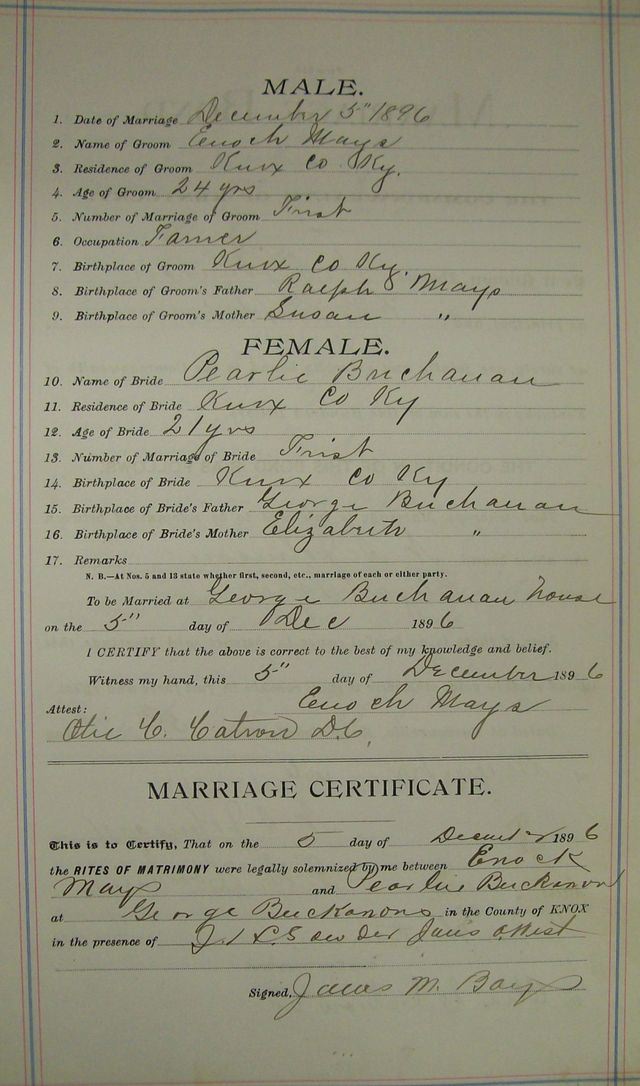 MALE.
1. Date of Marriage December 5" 1896
2. Name of Groom Enoch Mays
3. Residence of Groom Knox Co Ky.
4. Age of Groom 24 yrs
5. Number of Marriage of Groom First
6. Occupation Farmer
7. Birthplace of Groom Knox Co Ky.
8. Birthplace of Groom's Father Ralph Mays
9. Birthplace of Groom's Mother Susan "
FEMALE.
10. Name of Bride Pearlie Buchanan
11. Residence of Bride Knox Co Ky
12. Age of Bride 21 yrs
13. Number of Marriage of Bride First
14. Birthplace of Bride Knox Co Ky
15. Birthplace of Bride's Father George Buchanan
16. Birthplace of Bride's Mother Elizabeth "
17. Remarks
N. B.—At Nos. 5 and 13 state whether first, second, etc., marriage of each or either party.
To be Married at George Buchanan House
on the 5" day of Dec 1896
I CERTIFY that the above is correct to the best of my knowledge and belief.
Witness my hand, this 5" day of December 1896
Enoch Mays
Attest:
Otie C. Catron D.C.
MARRIAGE CERTIFICATE.
This is to Certify, That on the 5 day of 1896
the RITES OF MATRIMONY were legally solemnized by me between Enock
Mays and Pearlie Buckanon
at George Buckanons in the County of KNOX
in the presence of
Signed, James M. Bays